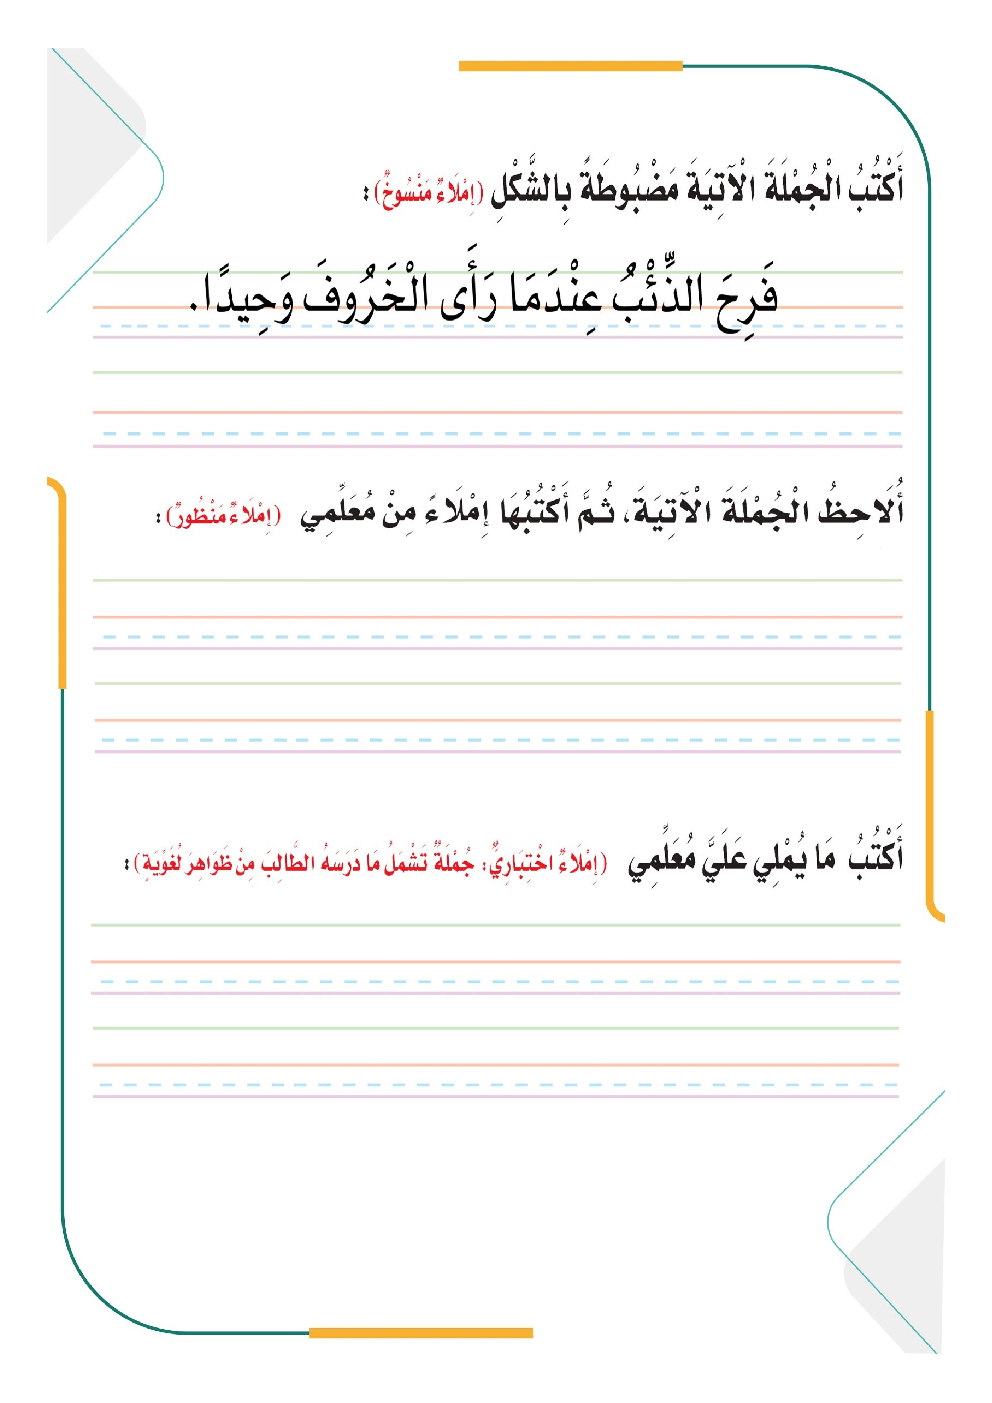 أَكْتُبُ الْجُمْلَةَ الْآتِيَةَ مَضْبُوطَةً بِالشَّكْلِ (إِمْلَاءٌ مَنْسُوخٌ) :
فَرِحَ الذِّئْبُ عِنْدَمَا رَأَى الْخَرُوفَ وَحِيدًا.
أُلَاحِظُ الْجُمْلَةَ الْآتِيَةَ، ثُمَّ أَكْتُبُهَا إِمْلَاءً مِنْ مُعَلِّمِي (إِمْلَاءٌ مَنْظُورٌ) :
أَكْتُبُ مَا يُمْلِي عَلَيَّ مُعَلِّمِي (إِمْلَاءٌ اخْتِبَارِيٌّ: جُمْلَةٌ تَشْمَلُ مَا دَرَسَهُ الطَّالِبَ مِنْ ظَوَاهِرَ لُغَوْيَةٍ) :